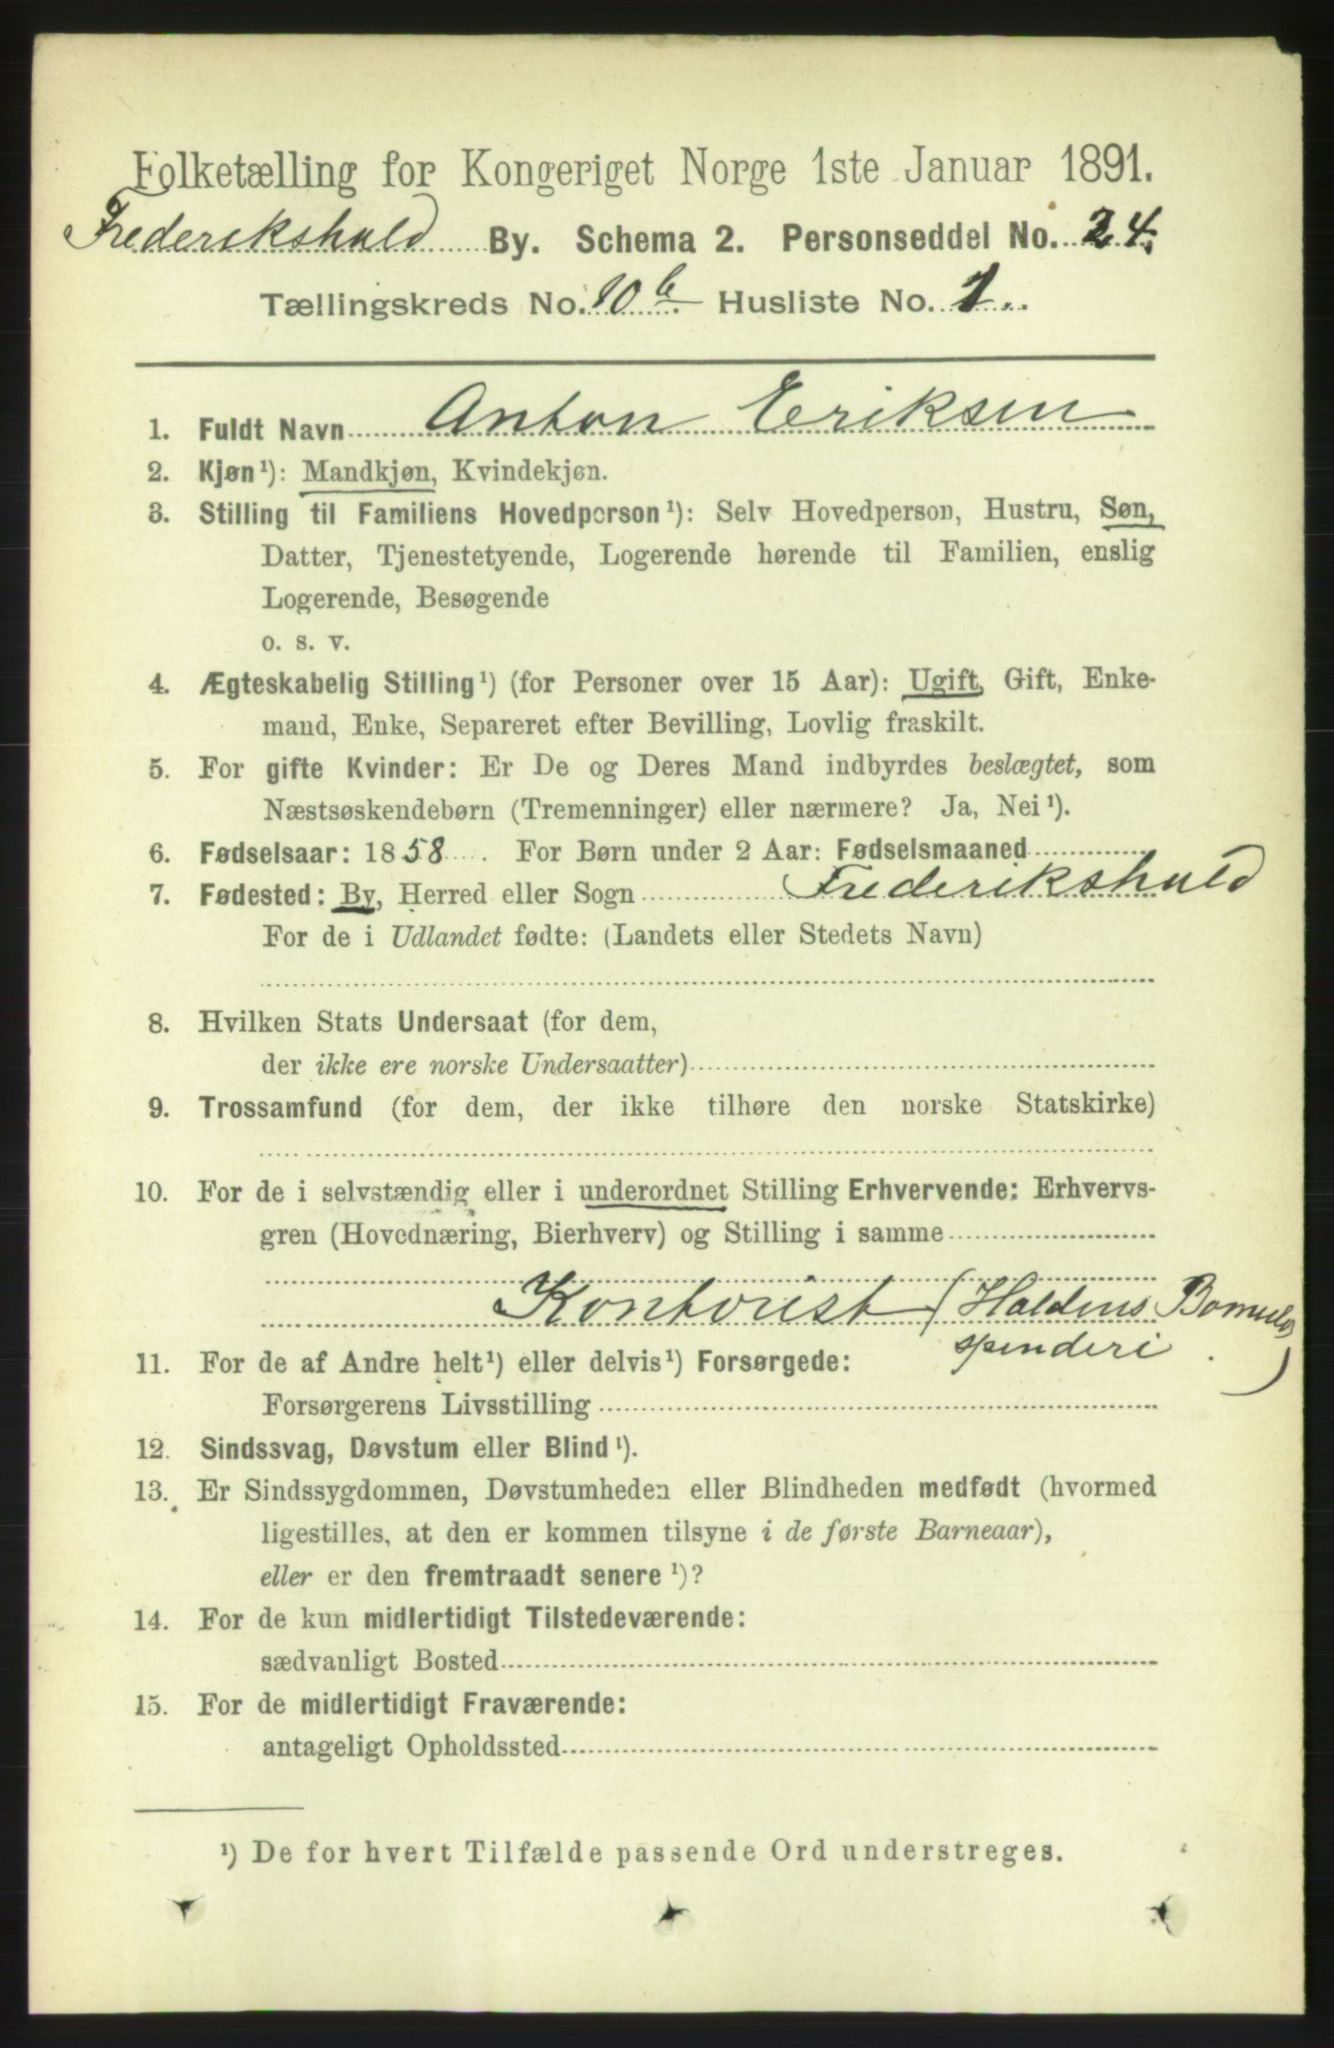 Folketælling for Kongeriget Norge 1ste Januar 1891.
Frederikshald By. Schema 2. Personseddel No. 24.
Tællingskreds No. 10 b. Husliste No. 1.
1. Fuldt Navn Anton Eriksen
2. Kjøn¹): Mandkjøn, Kvindekjøn.
3. Stilling til Familiens Hovedperson¹): Selv Hovedperson, Hustru, Søn,
Datter, Tjenestetyende, Logerende hørende til Familien, enslig
Logerende, Besøgende
o. s. v.
4. Ægteskabelig Stilling¹) (for Personer over 15 Aar): Ugift, Gift, Enke-
mand, Enke, Separeret efter Bevilling, Lovlig fraskilt.
5. For gifte Kvinder: Er De og Deres Mand indbyrdes beslægtet, som
Næstsøskendebørn (Tremenninger) eller nærmere? Ja, Nei¹).
6. Fødselsaar: 1858. For Børn under 2 Aar: Fødselsmaaned
7. Fødested: By, Herred eller Sogn Frederikshald
For de i Udlandet fødte: (Landets eller Stedets Navn)
8. Hvilken Stats Undersaat (for dem,
der ikke ere norske Undersaatter)
9. Trossamfund (for dem, der ikke tilhøre den norske Statskirke)
10. For de i selvstændig eller i underordnet Stilling Erhvervende: Erhvervs-
gren (Hovednæring, Bierhverv) og Stilling i samme
Kontorist (Haldens Bomulds
spinderi)
11. For de af Andre helt¹) eller delvis¹) Forsørgede:
Forsørgerens Livsstilling
12. Sindssvag, Døvstum eller Blind¹).
13. Er Sindssygdommen, Døvstumheden eller Blindheden medfødt (hvormed
ligestilles, at den er kommen tilsyne i de første Barneaar),
eller er den fremtraadt senere¹)?
14. For de kun midlertidigt Tilstedeværende:
sædvanligt Bosted
15. For de midlertidigt Fraværende:
antageligt Opholdssted
¹) De for hvert Tilfælde passende Ord understreges.